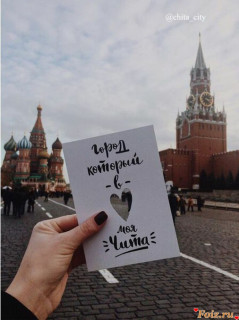 @chita_city
город
который
- в -
моя
Чита
Foiz.ru